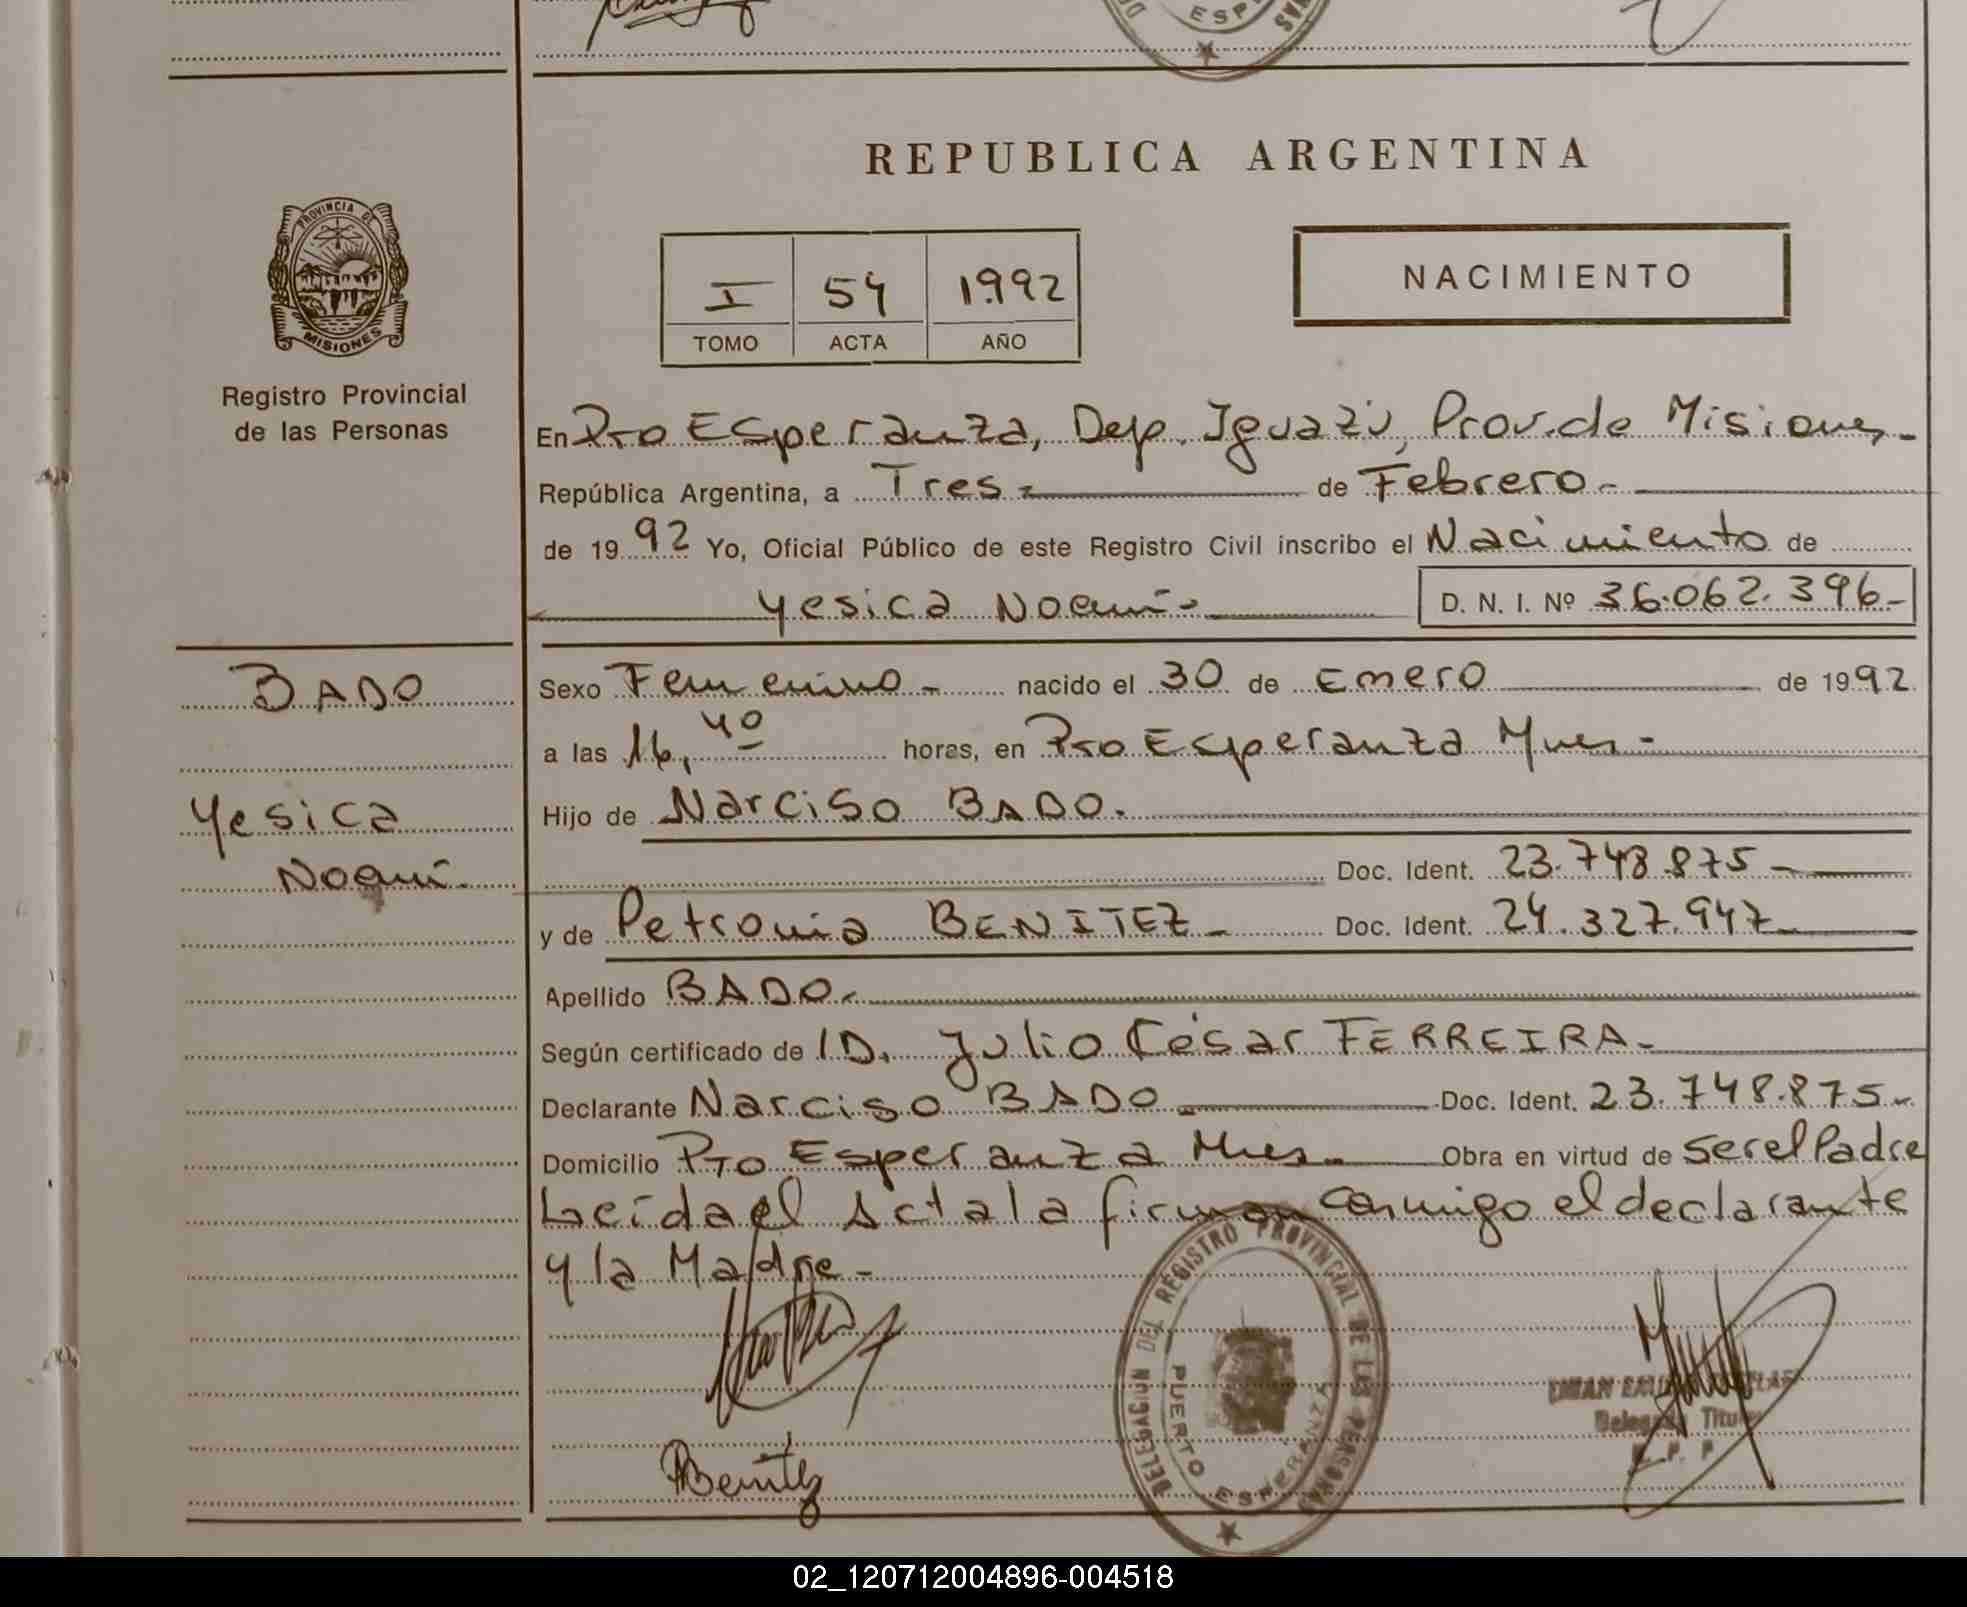 ESP
REPUBLICA ARGENTINA
PROVINCIA DE
MISIONES
Registro Provincial
de las Personas
I 54 1992
TOMO ACTA AÑO
NACIMIENTO
En Pto Esperanza, Dep. Iguazú, Prov. de Misiones-
República Argentina, a Tres- de Febrero.-
de 1992 Yo, Oficial Público de este Registro Civil inscribo el Nacimiento de
Yesica Noemí- D. N. I. Nº 36.062.396-
BADO
Yesica
Noemí.
Sexo Femenino- nacido el 30 de Enero de 1992
a las 16,40 horas, en Pto Esperanza Mnes-
Hijo de Narciso BADO.
Doc. Ident. 23.748.875-
y de Petrona BENITEZ- Doc. Ident. 24.327.947-
Apellido BADO.
Según certificado de ID. Julio César FERREIRA-
Declarante Narciso BADO Doc. Ident. 23.748.875-
Domicilio Pto Esperanza Mnes- Obra en virtud de ser el Padre
Leída el Acta la firman conmigo el declarante
y la Madre-
Benitez
DELEGACION DEL REGISTRO PROVINCIAL DE LAS PERSONAS
PUERTO ESPERANZA
Titular
02_120712004896-004518